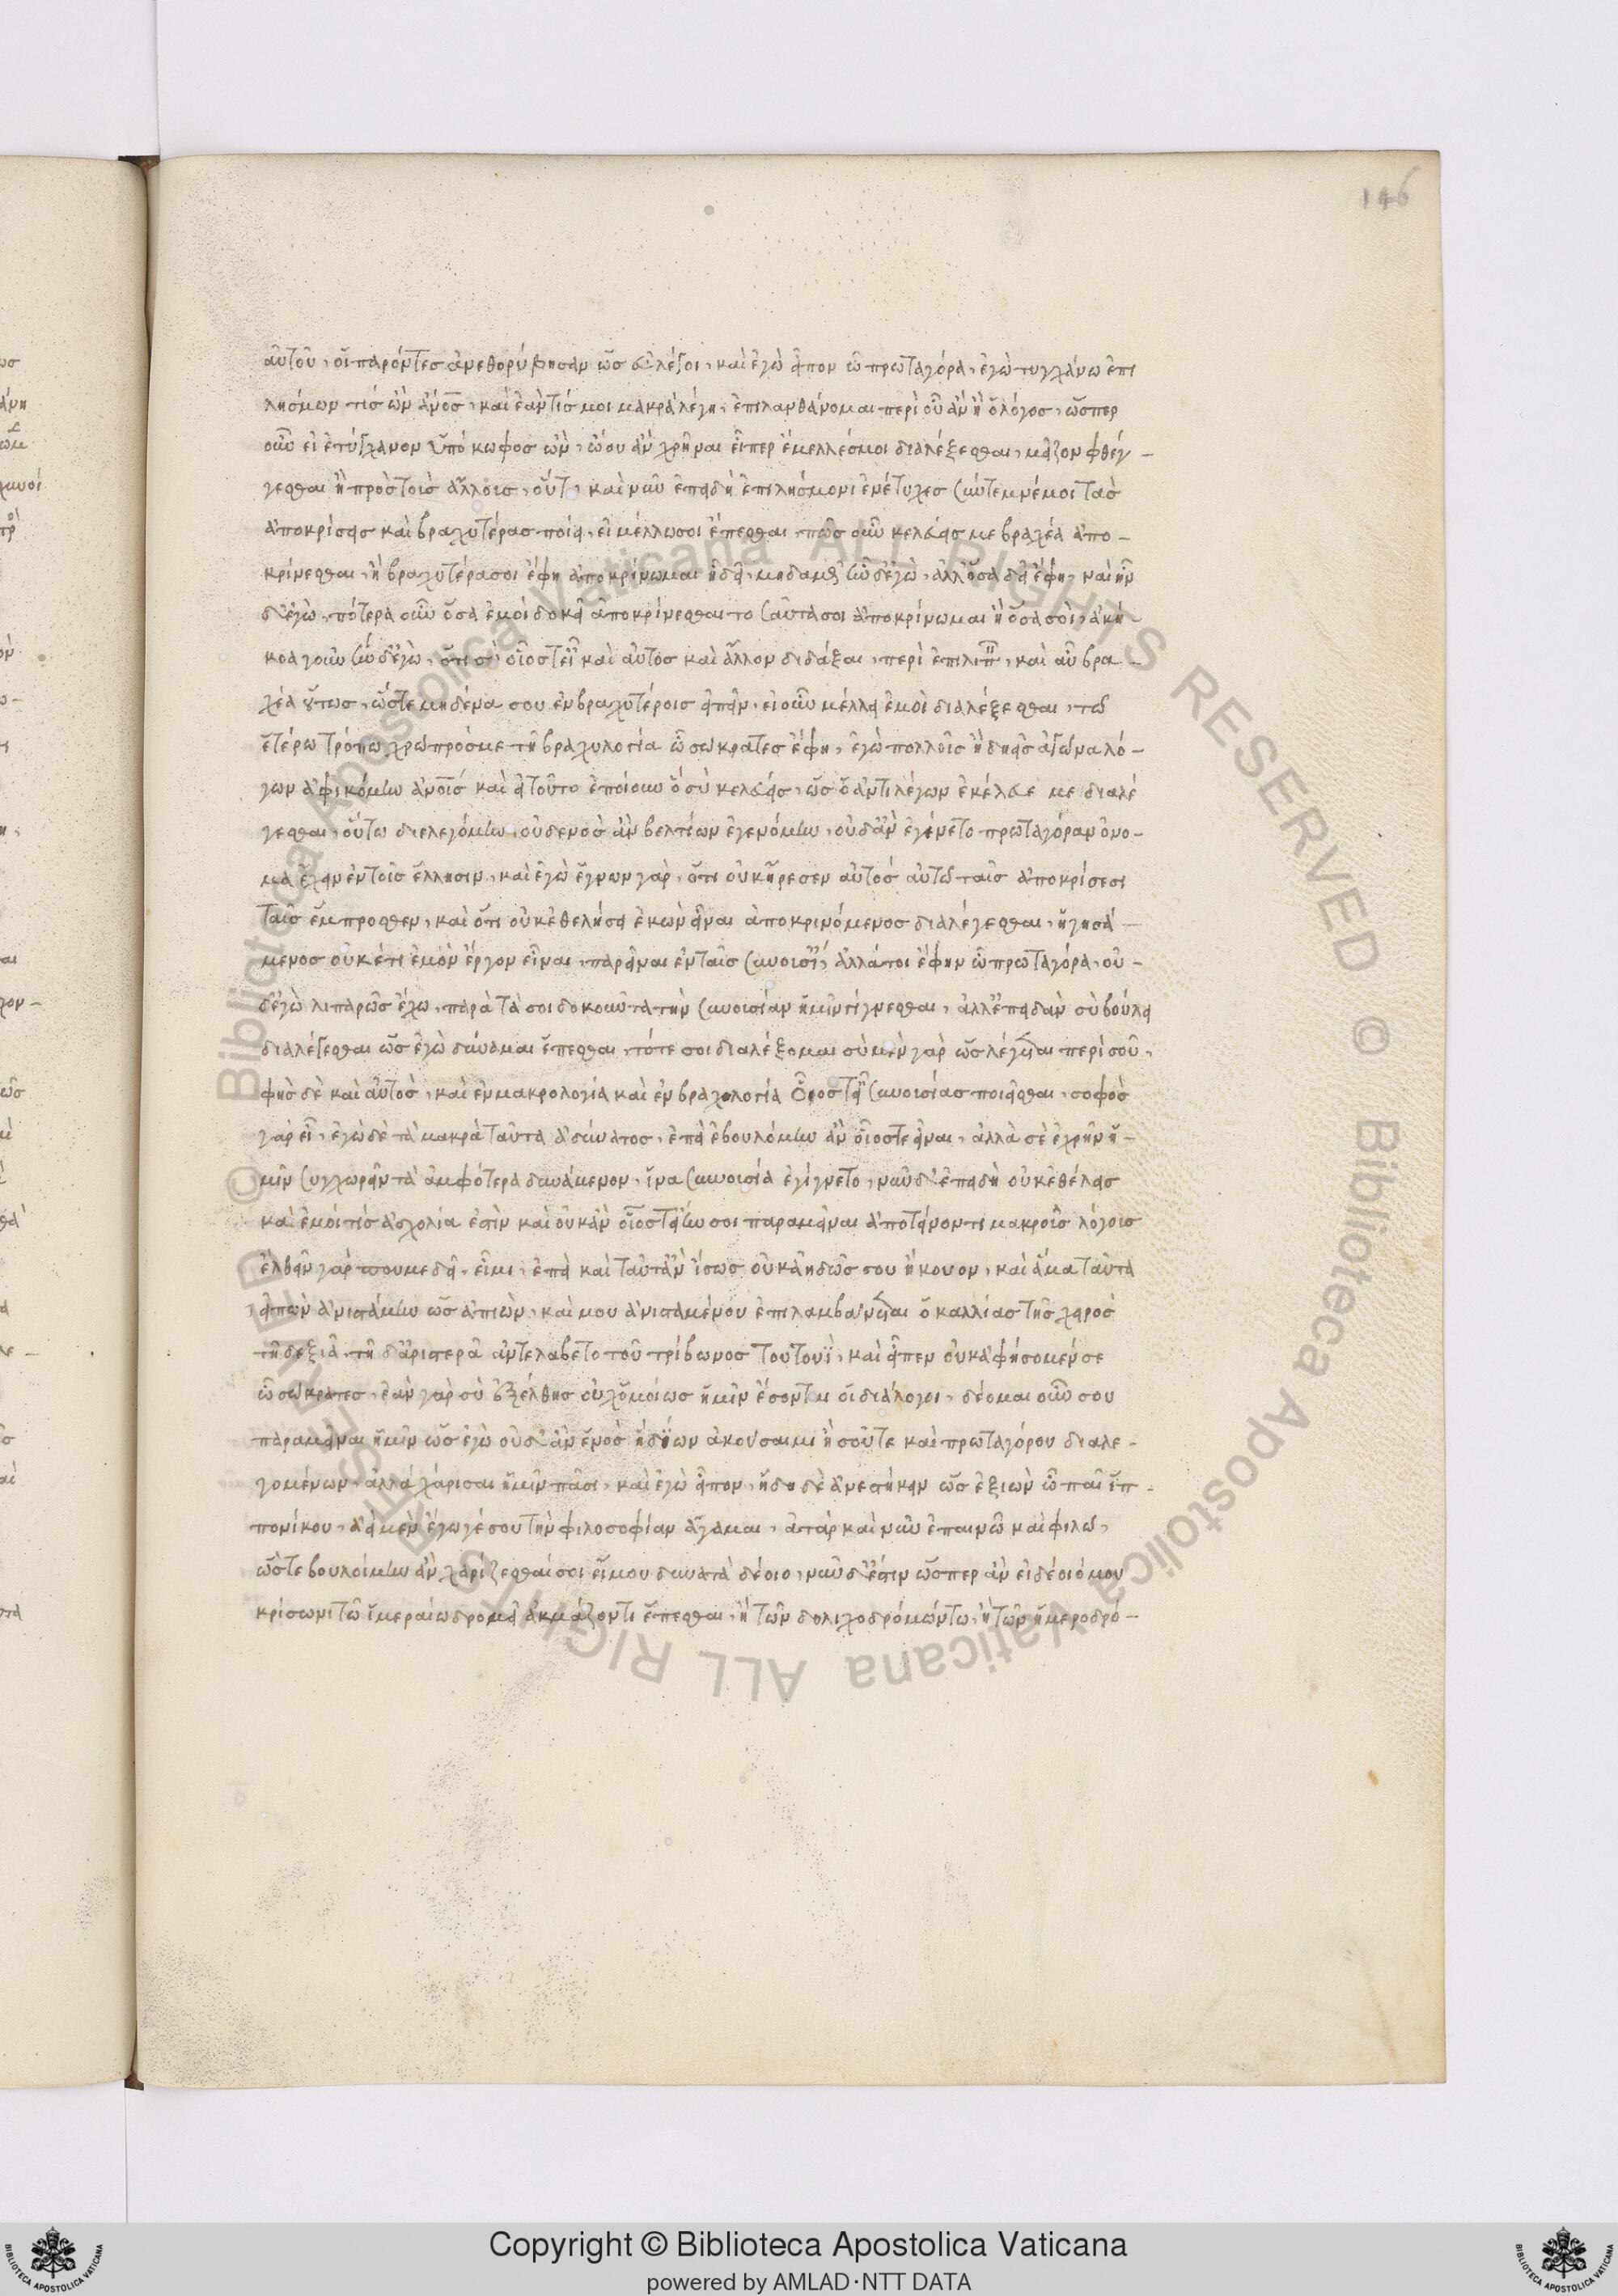 146
αὐτοῦ, οἱ παρόντες ἀνεθορύβησαν ὡς εὖ λέγοι, καὶ ἐγὼ εἶπον ὦ πρωταγόρα, ἐγὼ τυγχάνω ἐπι
λήσμων τίς ὢν ἄνος, καὶ ἐάν τίς μοι μακρὰ λέγη, ἐπιλανθάνομαι περὶ οὗ ἂν ἦ ὁ λόγος, ὥσπερ
οὖν εἰ ἐτύγχανον ὑπόκωφος ὢν, ᾤου ἂν χρῆναι εἴπερ ἔμελλές μοι διαλέξεσθαι, μεῖζον φθέγ-
γεσθαι ἢ πρὸς τοὺς ἄλλους, οὕτ, καὶ νῦν ἐπειδὴ ἐπιλήσμονι ἐνέτυχες σύντεμνέ μοι τὰς
ἀποκρίσεις καὶ βραχυτέρας ποίει, εἰ μέλλω σοι ἕπεσθαι, πῶς οὖν κελεύεις με βραχέα ἀπο-
κρίνεσθαι, ἢ βραχύτερά σοι ἔφη ἀποκρίνωμαι ἢ δεῖ, μηδαμῶς ἦν δ' ἐγὼ, ἀλλ' ὅσα δεῖ ἔφη, καὶ ἦν
δ' ἐγὼ, πότερα οὖν ὅσα ἐμοὶ δοκεῖ ἀποκρίνεσθαι τοσαῦτά σοι ἀποκρίνωμαι ἢ ὅσα σοὶ, ἀκή-
κοα γοῦν ἦν δ' ἐγὼ, ὅτι σὺ οἷός τ' εἶ καὶ αὐτὸς καὶ ἄλλον διδάξαι, περὶ καὶ αὖ βρα-
χέα οὕτως, ὥστε μηδένα σου ἐν βραχυτέροις εἰπεῖν, εἰ οὖν μέλλει ἐμοὶ διαλέξεσθαι, τῶ
ἑτέρω τρόπω χρῶ πρός με τῆ βραχυλογία ὦ σώκρατες ἔφη, ἐγὼ πολλοῖς ἤδη εἰς ἀγῶνα λό-
γων ἀφικόμην ἀνοις καὶ εἰ τοῦτο ἐποίουν ὃ σὺ κελεύεις, ὡς ὁ ἀντιλέγων ἐκέλευε με διαλέ
γεσθαι, οὕτω διελεγόμην, οὐδενὸς ἂν βελτίων ἐγενόμην, οὐδ' ἂν ἐγένετο πρωταγόραν ὄνο-
μα ἔχειν ἐν τοῖς ἕλλησιν, καὶ ἐγὼ ἔγνων γὰρ, ὅτι οὐκ ἤρεσεν αὐτὸς αὐτῶ ταῖς ἀποκρίσεσι
ταῖς ἔμπροσθεν, καὶ ὅτι οὐκ ἐθελήσει ἑκὼν εἶναι ἀποκρινόμενος διαλέγεσθαι, ἡγησά-
μενος οὐκέτι ἐμὸν ἔργον εἶναι, παρεῖναι ἐν ταῖς συνουσί, ἀλλά τοι ἔφην ὦ πρωταγόρα, οὐ-
δ' ἐγὼ λιπαρῶς ἔχω, παρὰ τά σοι δοκοῦντα τὴν συνουσίαν ἡμῖν γίγνεσθαι, ἀλλ' ἐπειδὰν σὺ βούλη
διαλέγεσθαι ὡς ἐγὼ δύναμαι ἕπεσθαι, τότε σοι διαλέξομαι σὺ μὲν γὰρ ὡς λέγεται περὶ σοῦ,
φὴς δὲ καὶ αὐτὸς, καὶ ἐν μακρολογία καὶ ἐν βραχυλογία οἷός τ' εἶ συνουσίας ποιεῖσθαι, σοφὸς
γὰρ εἶ, ἐγὼ δὲ τὰ μακρὰ ταῦτα ἀδύνατος, ἐπεὶ ἐβουλόμην ἂν οἷός τε εἶναι, ἀλλὰ σὲ ἐχρῆν ἡ-
μῖν συγχωρεῖν τὰ ἀμφότερα δυνάμενον, ἵνα συνουσία ἐγίγνετο, νῦν δ' ἐπειδὴ οὐκ ἐθέλεις
καὶ ἐμοί τις ἀσχολία ἐστὶν καὶ οὐκ ἂν οἷός τ' εἴην σοι παραμεῖναι ἀποτείνοντι μακροὺς λόγους
ἐλθεῖν γάρ ποι με δεῖ, εἶμι, ἐπεὶ καὶ ταῦτ' ἂν ἴσως οὐκ ἀηδῶς σου ἤκουον, καὶ ἅμα ταῦτα
εἰπὼν ἀνιστάμην ὡς ἀπιὼν, καί μου ἀνισταμένου ἐπιλαμβάνεται ὁ καλλίας τῆς χειρὸς
τῆ δεξιᾶ, τῆ δ' ἀριστερᾶ ἀντελάβετο τοῦ τρίβωνος τουτουῒ, καὶ εἶπεν οὐκ ἀφήσομέν σε
ὦ σώκρατες, ἐὰν γὰρ σὺ ἐξέλθης οὐχ ὁμοίως ἡμῖν ἔσονται οἱ διάλογοι, δέομαι οὖν σου
παραμεῖναι ἡμῖν ὡς ἐγὼ οὐδ' ἂν ἑνὸς ἥδιον ἀκούσαιμι ἢ σοῦ τε καὶ πρωταγόρου διαλε-
γομένων, ἀλλὰ χάρισαι ἡμῖν πᾶσι, καὶ ἐγὼ εἶπον, ἤδη δὲ ἀνεστήκειν ὡς ἐξιὼν ὦ παῖ ἱπ-
πονίκου, ἀεὶ μὲν ἔγωγέ σου τὴν φιλοσοφίαν ἄγαμαι, ἀτὰρ καὶ νῦν ἐπαινῶ καὶ φιλῶ,
ὥστε βουλοίμην ἂν χαρίζεσθαί σοι εἴ μου δυνατὰ δέοιο, νῦν δ' ἐστὶν ὥσπερ ἂν εἰ δέοιό μου
κρίσωνι τῶ ἱμεραίω δρομεῖ ἀκμάζοντι ἕπεσθαι, ἢ τῶν δολιχοδρόμων τω, ἢ τῶν ἡμεροδρό-
© Biblioteca Apostolica Vaticana ALL RIGHTS RESERVED © Biblioteca Apostolica Vaticana ALL RIGHTS RESERVED
Copyright © Biblioteca Apostolica Vaticana
powered by AMLAD·NTT DATA